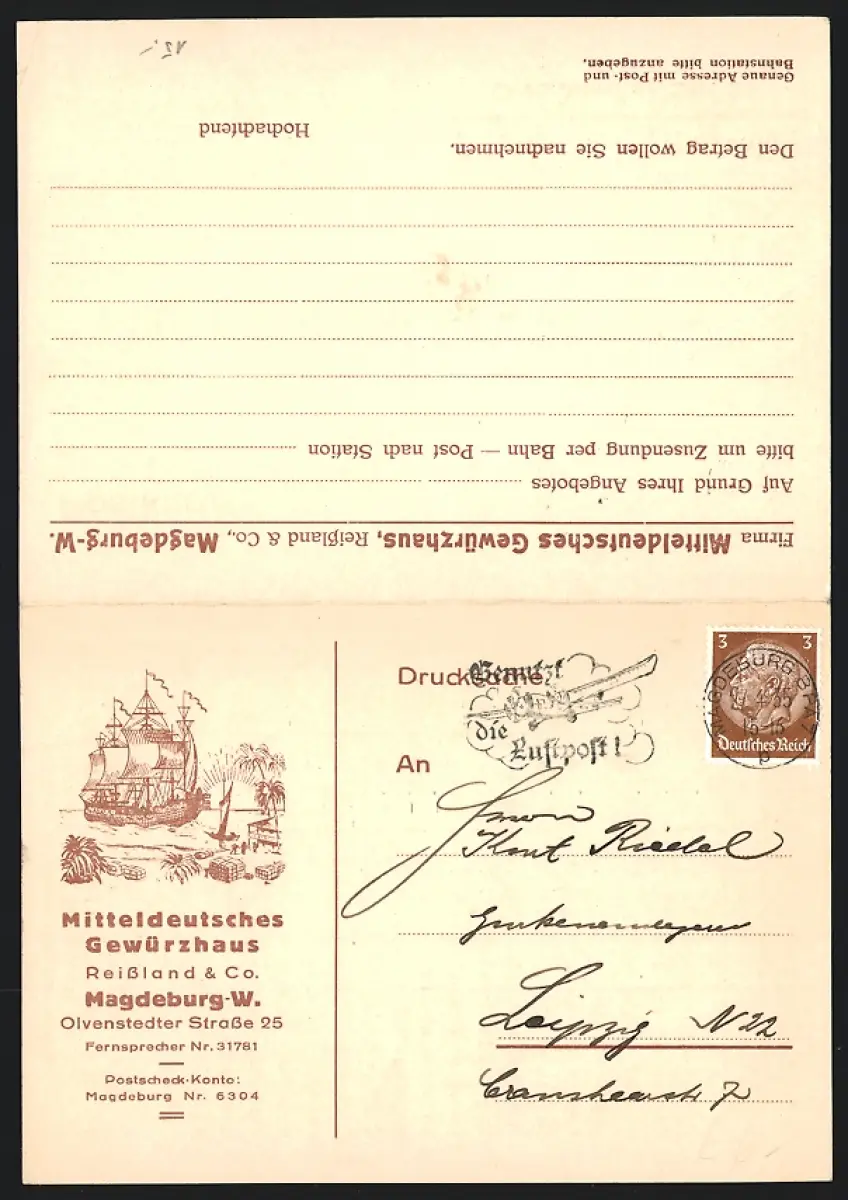 15.-
Genaue Adresse mit Post- und
Bahnstation bitte anzugeben.
Hochachtend
Den Betrag wollen Sie nachnehmen.
bitte um Zusendung per Bahn — Post nach Station
Auf Grund Ihres Angebotes
Firma Mitteldeutsches Gewürzhaus, Reißland & Co., Magdeburg-W.
Drucksache
Benutzt
die
Luftpost!
3 3
Deutsches Reich
MAGDEBURG
15-16
p
An
Herrn
Kurt Riedel
Leipzig N 22
7
Mitteldeutsches
Gewürzhaus
Reißland & Co.
Magdeburg-W.
Olvenstedter Straße 25
Fernsprecher Nr. 31781
Postscheck-Konto:
Magdeburg Nr. 6304